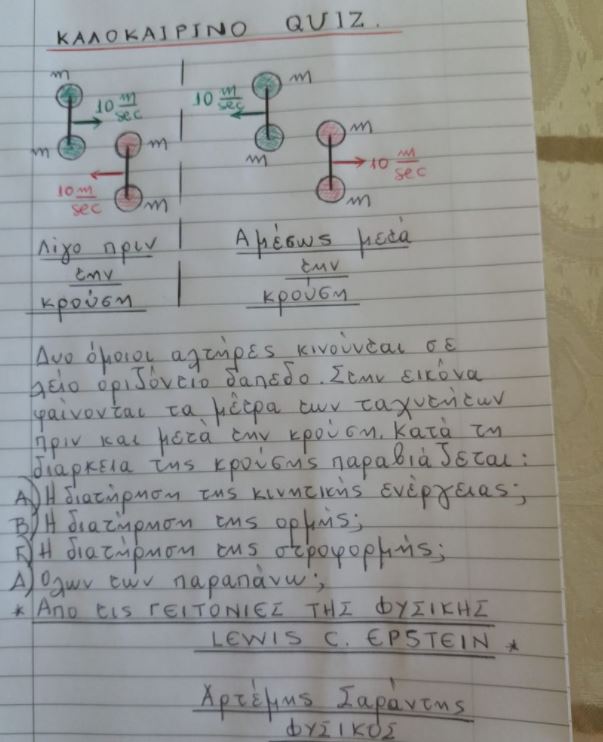 ΚΑΛΟΚΑΙΡΙΝΟ QUIZ.
m
10 m/sec
m
m
10 m/sec
m
m
10 m/sec
m
m
10 m/sec
m
Λίγο πριν
την
κρούση
Αμέσως μετά
την
κρούση
Δυο όμοιοι αλτήρες κινούνται σε
λείο οριζόντιο δαπεδο. Στην εικόνα
φαίνονται τα μέτρα των ταχυτήτων
πριν και μετά την κρούση. Κατά τη
διαρκεια της κρούσης παραβιάζεται:
Α) Η διατήρηση της κινητικής ενέργειας;
Β) Η διατήρηση της ορμής;
Γ) Η διατήρηση της στροφορμής;
Δ) Ολων των παραπάνω;
* Απο τις ΓΕΙΤΟΝΙΕΣ ΤΗΣ ΦΥΣΙΚΗΣ
LEWIS C. EPSTEIN *
Αρτέμης Σαράντης
ΦΥΣΙΚΟΣ